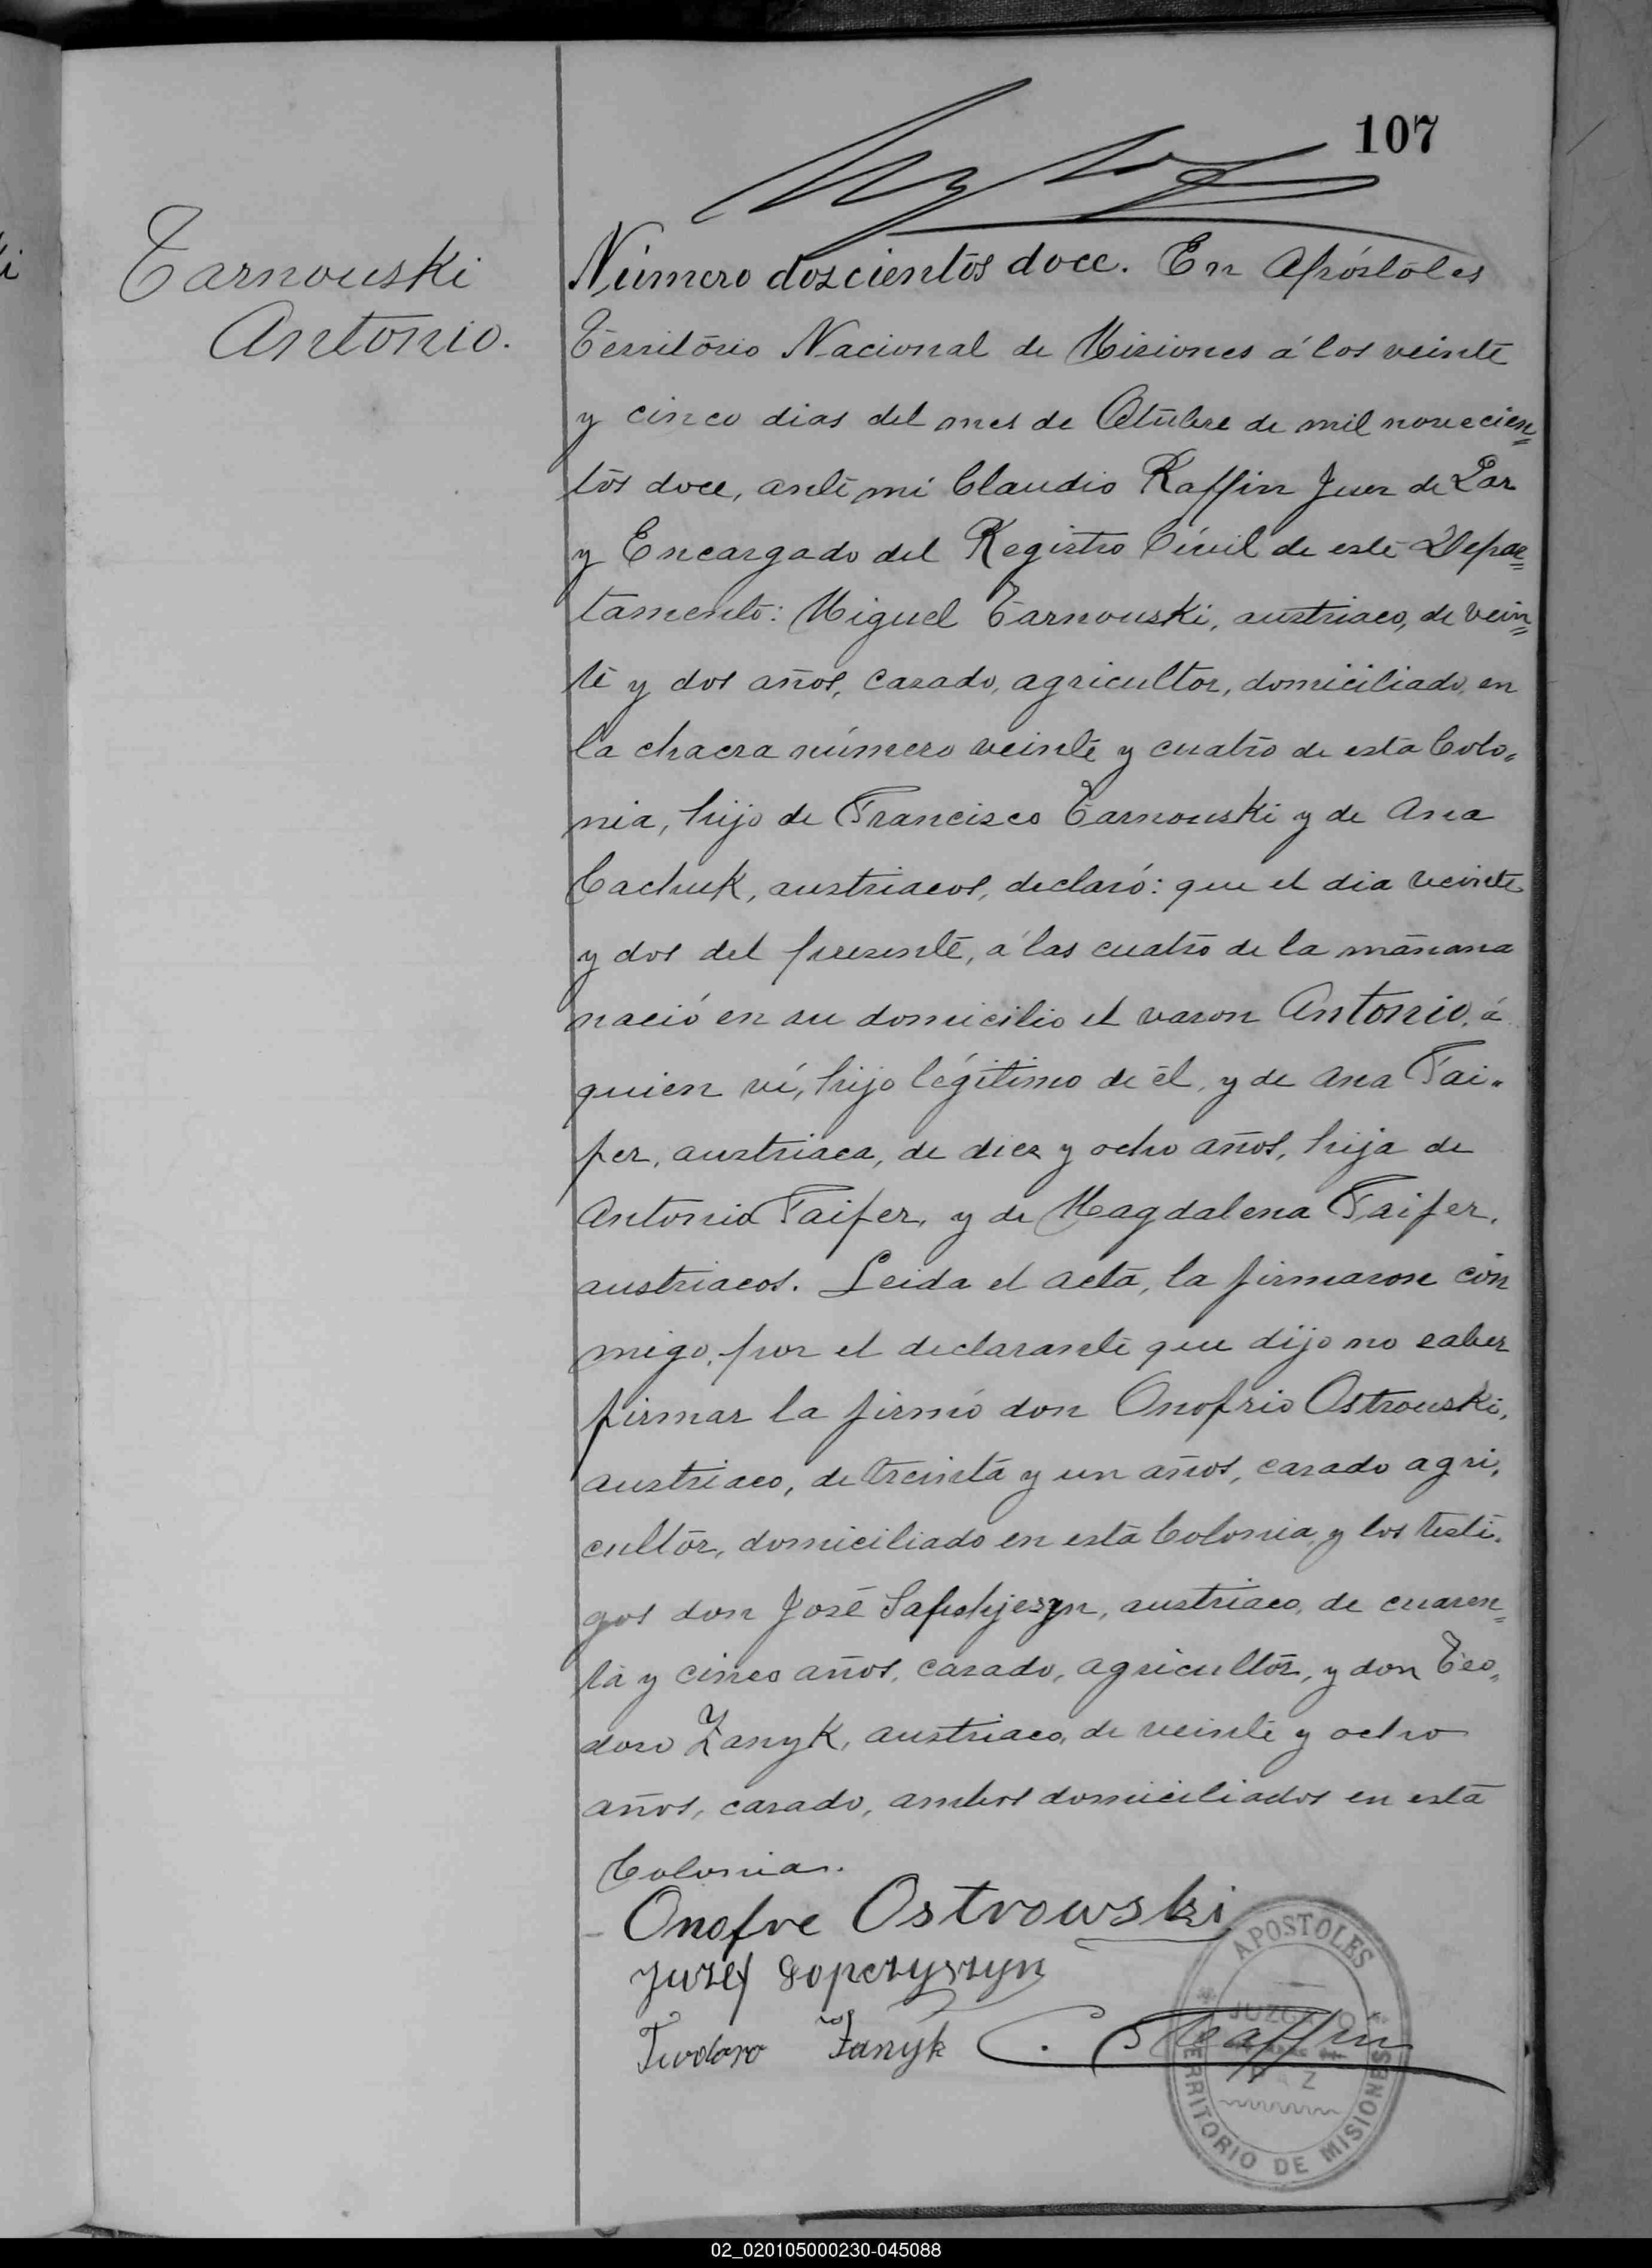 107
Tarnouski
Antonio.
Número doscientos doce. En Apóstoles
Território Nacional de Misiones á los veinte
y cinco dias del mes de Octubre de mil novecien=
tos doce, ante mi Claudio Raffin Juez de Paz
y Encargado del Registro Civil de este Depar=
tamento: Miguel Tarnouski, austriaco, de vein=
te y dos años, casado, agricultor, domiciliado en
la chacra número veinte y cuatro de esta Colo-
nia, hijo de Francisco Tarnouski y de Ana
Cachuk, austriacos, declaró: que el dia veinte
y dos del presente, á las cuatro de la mañana
nació en su domicilio el varon Antonio, á
quien ví, hijo légitimo de él, y de Ana Fai-
fer, austriaca, de diez y ocho años, hija de
Antonio Faifer, y de Magdalena Faifer,
austriacos. Leida el acta, la firmaron con
migo, por el declarante que dijo no saber
firmar la firmó don Onofrio Ostrouski,
austriaco, de treinta y un años, casado agri-
cultor, domiciliado en esta Colonia, y los testi-
gos don José, austriaco, de cuaren=
ta y cinco años, casado, agricultor, y don Teo-
doro Zanyk, austriaco, de veinte y ocho
años, casado, ambos domiciliados en esta
Colonia.
Onofre Ostrowski
Juzef Sopczyszyn
Teodoro Zanyk C. Raffin
APOSTOLES
JUZGADO
DE
PAZ
TERRITORIO DE MISIONES
02_020105000230-045088